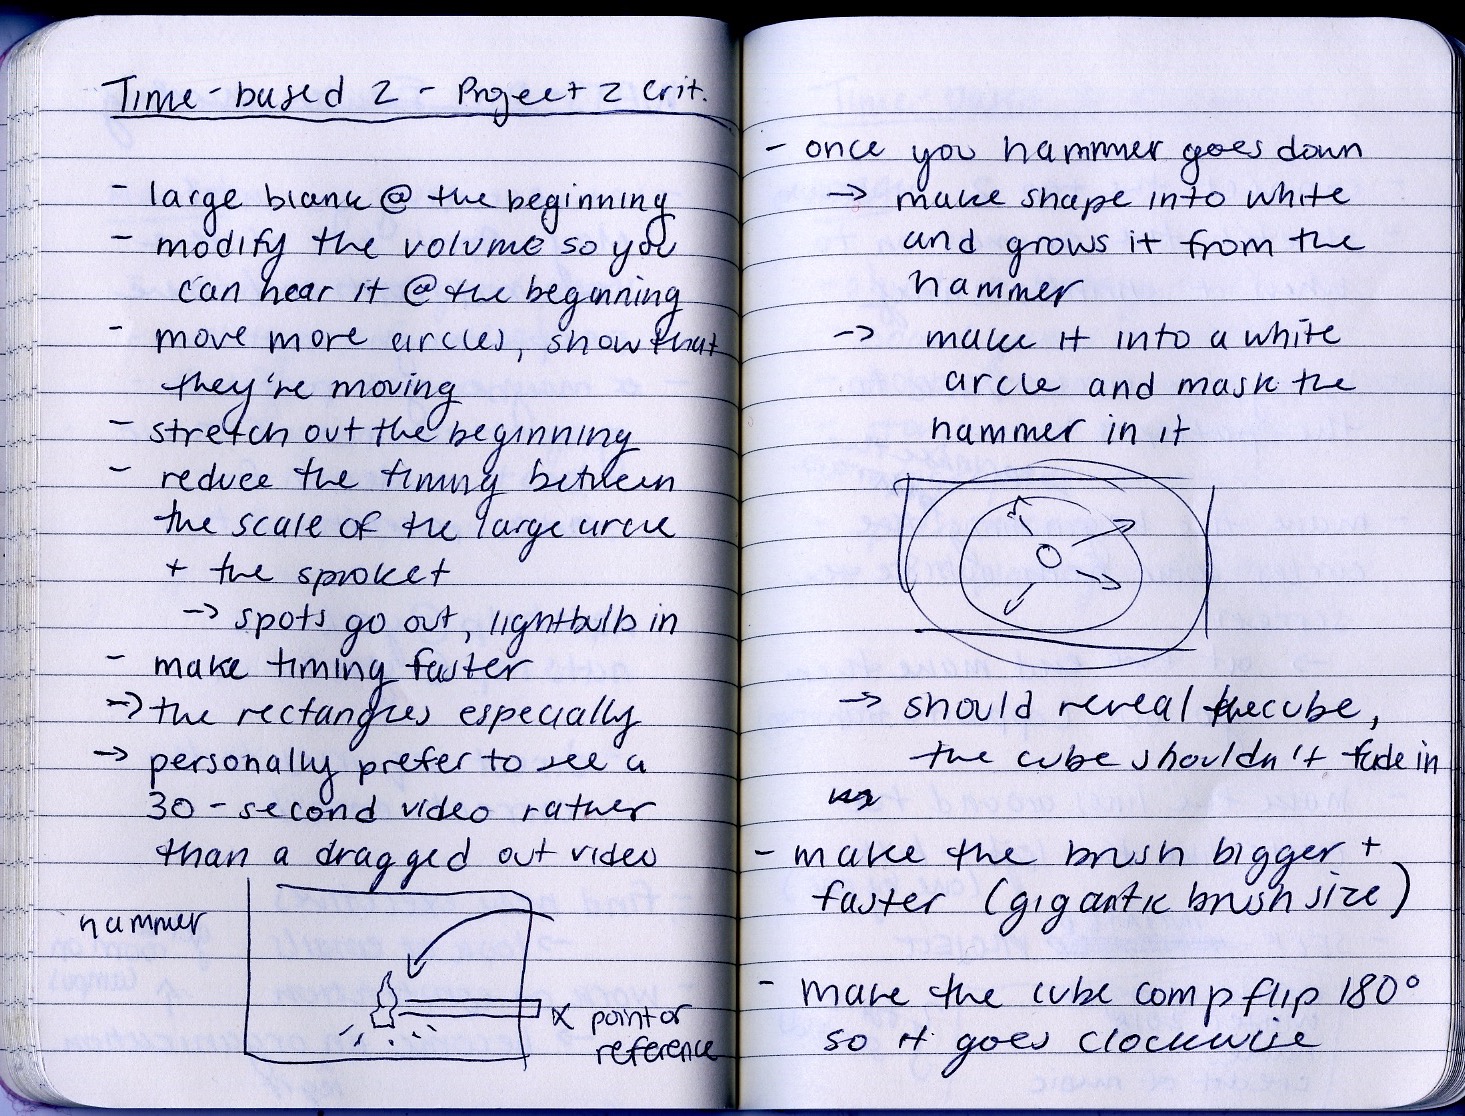 Time-based 2 - Project 2 crit.
- large blank @ the beginning
- modify the volume so you
can hear it @ the beginning
- move more circles, show that
they're moving
- stretch out the beginning
- reduce the timing between
the scale of the large circle
+ the sproket
→ spots go out, lightbulb in
- make timing faster
→ the rectangles especially
→ personally prefer to see a
30-second video rather
than a dragged out video
hammer
x point of
reference
- once you hammmer goes down
→ make shape into white
and grows it from the
hammer
→ make it into a white
circle and mask the
hammer in it
→ should reveal the cube,
the cube shouldn't fade in
- make the brush bigger +
faster (gigantic brush size)
- make the cube comp flip 180°
so it goes clockwise